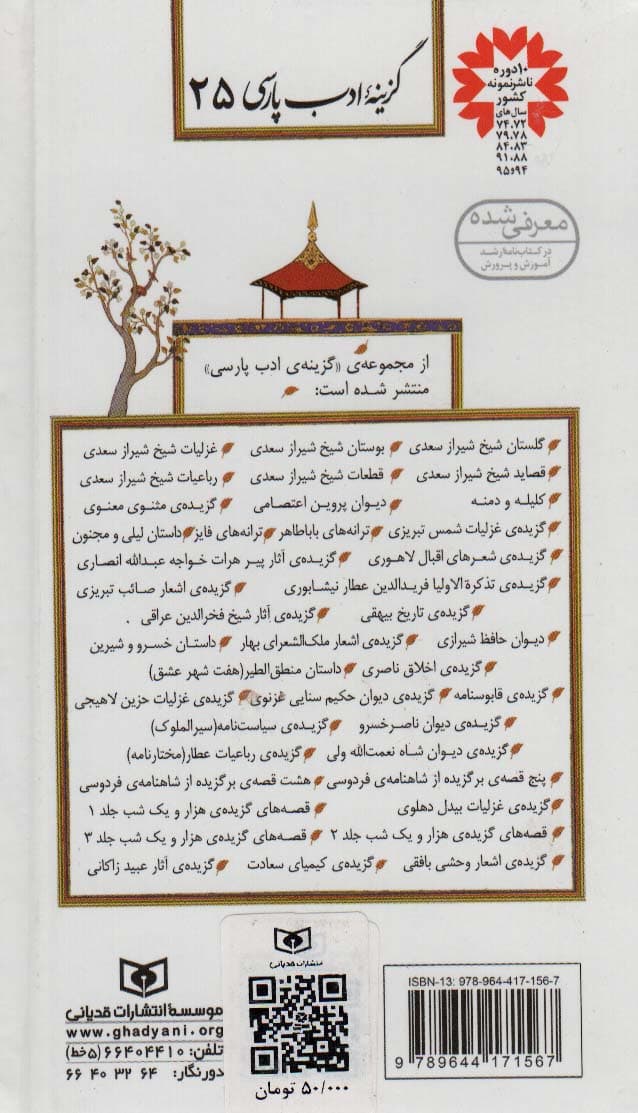 گزینهٔ ادب پارسی ۲۵
۱۰ دوره
ناشر نمونه
کشور
سال‌های
۷۴،۷۲
۷۹،۷۸
۸۴،۸۳
۹۱،۸۸
۹۴ و ۹۵
معرفی شده
در کتاب‌نامهٔ رشد
آموزش و پرورش
از مجموعه‌ی «گزینه‌ی ادب پارسی»
منتشر شده است:
گلستان شیخ شیراز سعدی بوستان شیخ شیراز سعدی غزلیات شیخ شیراز سعدی
قصاید شیخ شیراز سعدی قطعات شیخ شیراز سعدی رباعیات شیخ شیراز سعدی
کلیله و دمنه دیوان پروین اعتصامی گزیده‌ی مثنوی معنوی
گزیده‌ی غزلیات شمس تبریزی ترانه‌های باباطاهر ترانه‌های فایز داستان لیلی و مجنون
گزیده‌ی شعرهای اقبال لاهوری گزیده‌ی آثار پیر هرات خواجه عبدالله انصاری
گزیده‌ی تذکرة الاولیا فریدالدین عطار نیشابوری گزیده‌ی اشعار صائب تبریزی
گزیده‌ی تاریخ بیهقی گزیده‌ی آثار شیخ فخرالدین عراقی
دیوان حافظ شیرازی گزیده‌ی اشعار ملک‌الشعرای بهار داستان خسرو و شیرین
گزیده‌ی اخلاق ناصری داستان منطق‌الطیر(هفت شهر عشق)
گزیده‌ی قابوسنامه گزیده‌ی دیوان حکیم سنایی غزنوی گزیده‌ی غزلیات حزین لاهیجی
گزیده‌ی دیوان ناصرخسرو گزیده‌ی سیاست‌نامه(سیرالملوک)
گزیده‌ی دیوان شاه نعمت‌الله ولی گزیده‌ی رباعیات عطار(مختارنامه)
پنج قصه‌ی برگزیده از شاهنامه‌ی فردوسی هشت قصه‌ی برگزیده از شاهنامه‌ی فردوسی
گزیده‌ی غزلیات بیدل دهلوی قصه‌های گزیده‌ی هزار و یک شب جلد ۱
قصه‌های گزیده‌ی هزار و یک شب جلد ۲ قصه‌های گزیده‌ی هزار و یک شب جلد ۳
گزیده‌ی اشعار وحشی بافقی گزیده‌ی کیمیای سعادت گزیده‌ی آثار عبید زاکانی
ISBN-13: 978-964-417-156-7
9 789644 171567
انتشارات قدیانی
۵۰/۰۰۰ تومان
موسسهٔ انتشارات قدیانی
www.ghadyani.org
تلفن: ۶۶۴۰۴۴۱۰ (۵ خط)
دورنگار: ۶۶ ۴۰ ۳۲ ۶۴